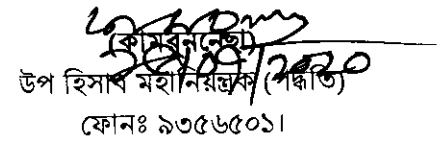 (কামরুননেছা)
উপ হিসাব মহানিয়ন্ত্রক (পদ্ধতি)
ফোনঃ ৯৩৫৬৫০১।